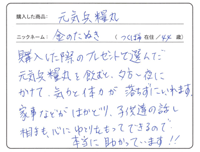 購入した商品: 元気兵糧丸
ニックネーム: 金のたぬき (つくば市在住/44歳)
購入した際のプレゼントで選んだ
元気兵糧丸を飲むと、夕方〜夜に
かけて、気力と体力が落ちずにいれます。
家事などがはかどり、子供達の話し
相手も心にゆとりをもってできるので
本当に助かっています!!